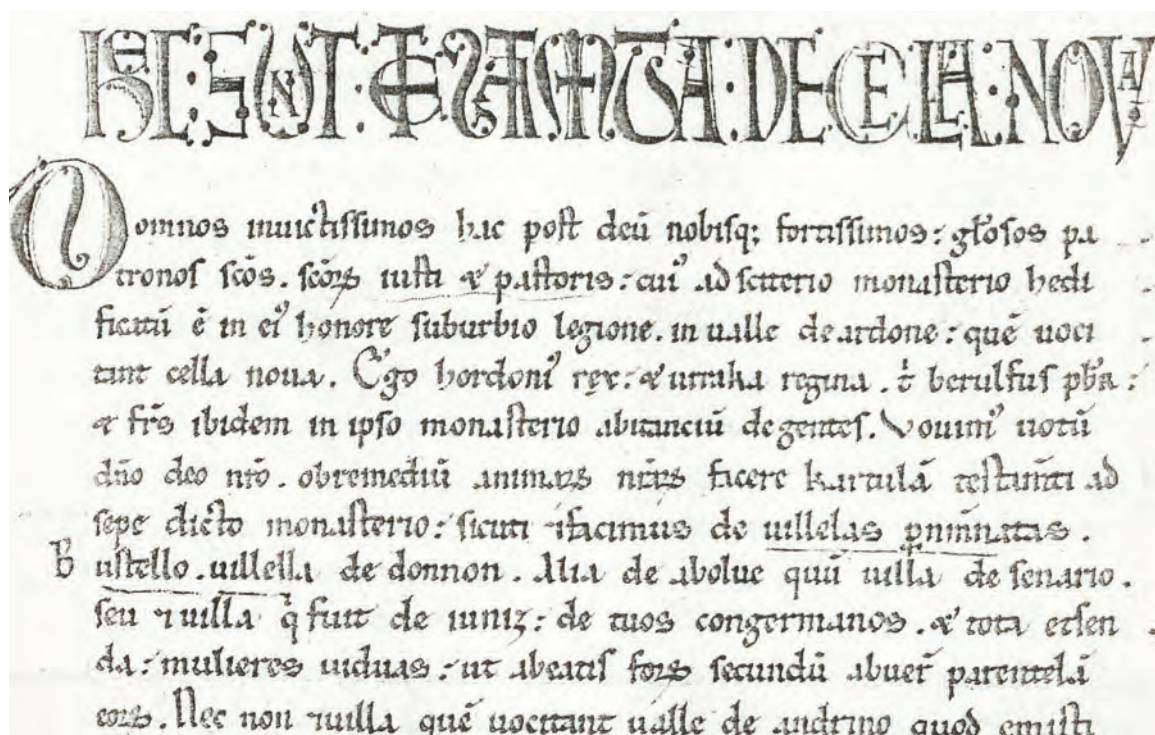 HEC SUNT TESTAMENTA DE CELLA NOVA
Domnos inuictissimos hac post deũ nobisq; fortissimos: gl̃osos pa
tronos sc̃os. sc̃oꝝ iusti & pastoris: cuiꝰ adsciterio monasterio hedi
ficatũ ẽ in eiꝰ honore suburbio legione. in ualle de ardone: quẽ uoci
tant cella noua. Ego hordoniꝰ rex: & urraka regina. berulfus pb̃r:
& fr̃s ibidem in ipso monasterio abitanciũ degentes. Vouimꝰ uotũ
dño deo nr̃o. obremediũ animaꝝ nr̃aꝝ facere kartulã testam̃ti ad
sepe dicto monasterio: sicuti ⁊facimus de uillelas p̃nim̃natas.
Bustello. uillella de donnon. Alia de abolue quũ uilla de senario.
seu ⁊uilla q̃ fuit de iuniz: de tuos congermanos. & tota etsen
da: mulieres uiduas: ut abeatis foꝝ secundũ abuer̃ parentelã
eoꝝ. Nec non ⁊uilla quẽ uocitant ualle de andrino quod emisti